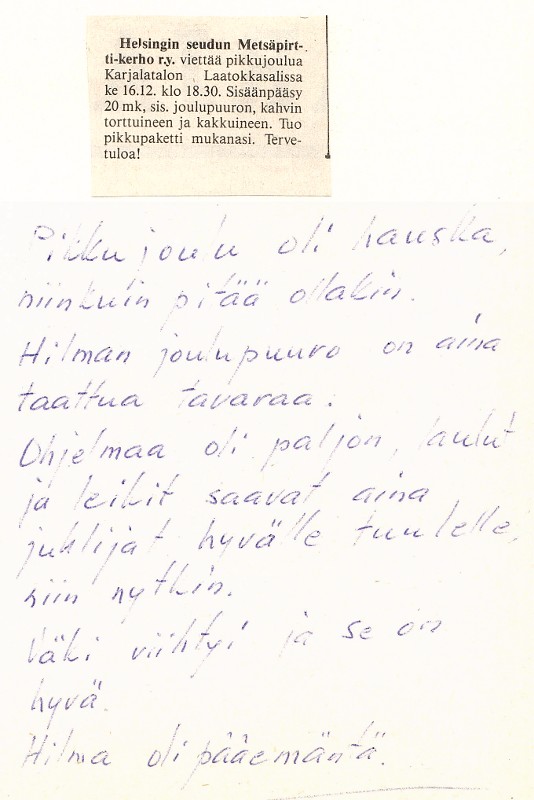 Helsingin seudun Metsäpirt-
ti-kerho r.y. viettää pikkujoulua
Karjalatalon Laatokkasalissa
ke 16.12. klo 18.30. Sisäänpääsy
20 mk, sis. joulupuuron, kahvin
torttuineen ja kakkuineen. Tuo
pikkupaketti mukanasi. Terve-
tuloa!
Pikkujoulu oli hauska,
niinkuin pitää ollakin.
Hilman joulupuuro on aina
taattua tavaraa.
Ohjelmaa oli paljon, laulut
ja leikit saavat aina
juhlijat hyvälle tuulelle,
niin nytkin.
Väki viihtyi ja se on
hyvä.
Hilma oli pääemäntä.